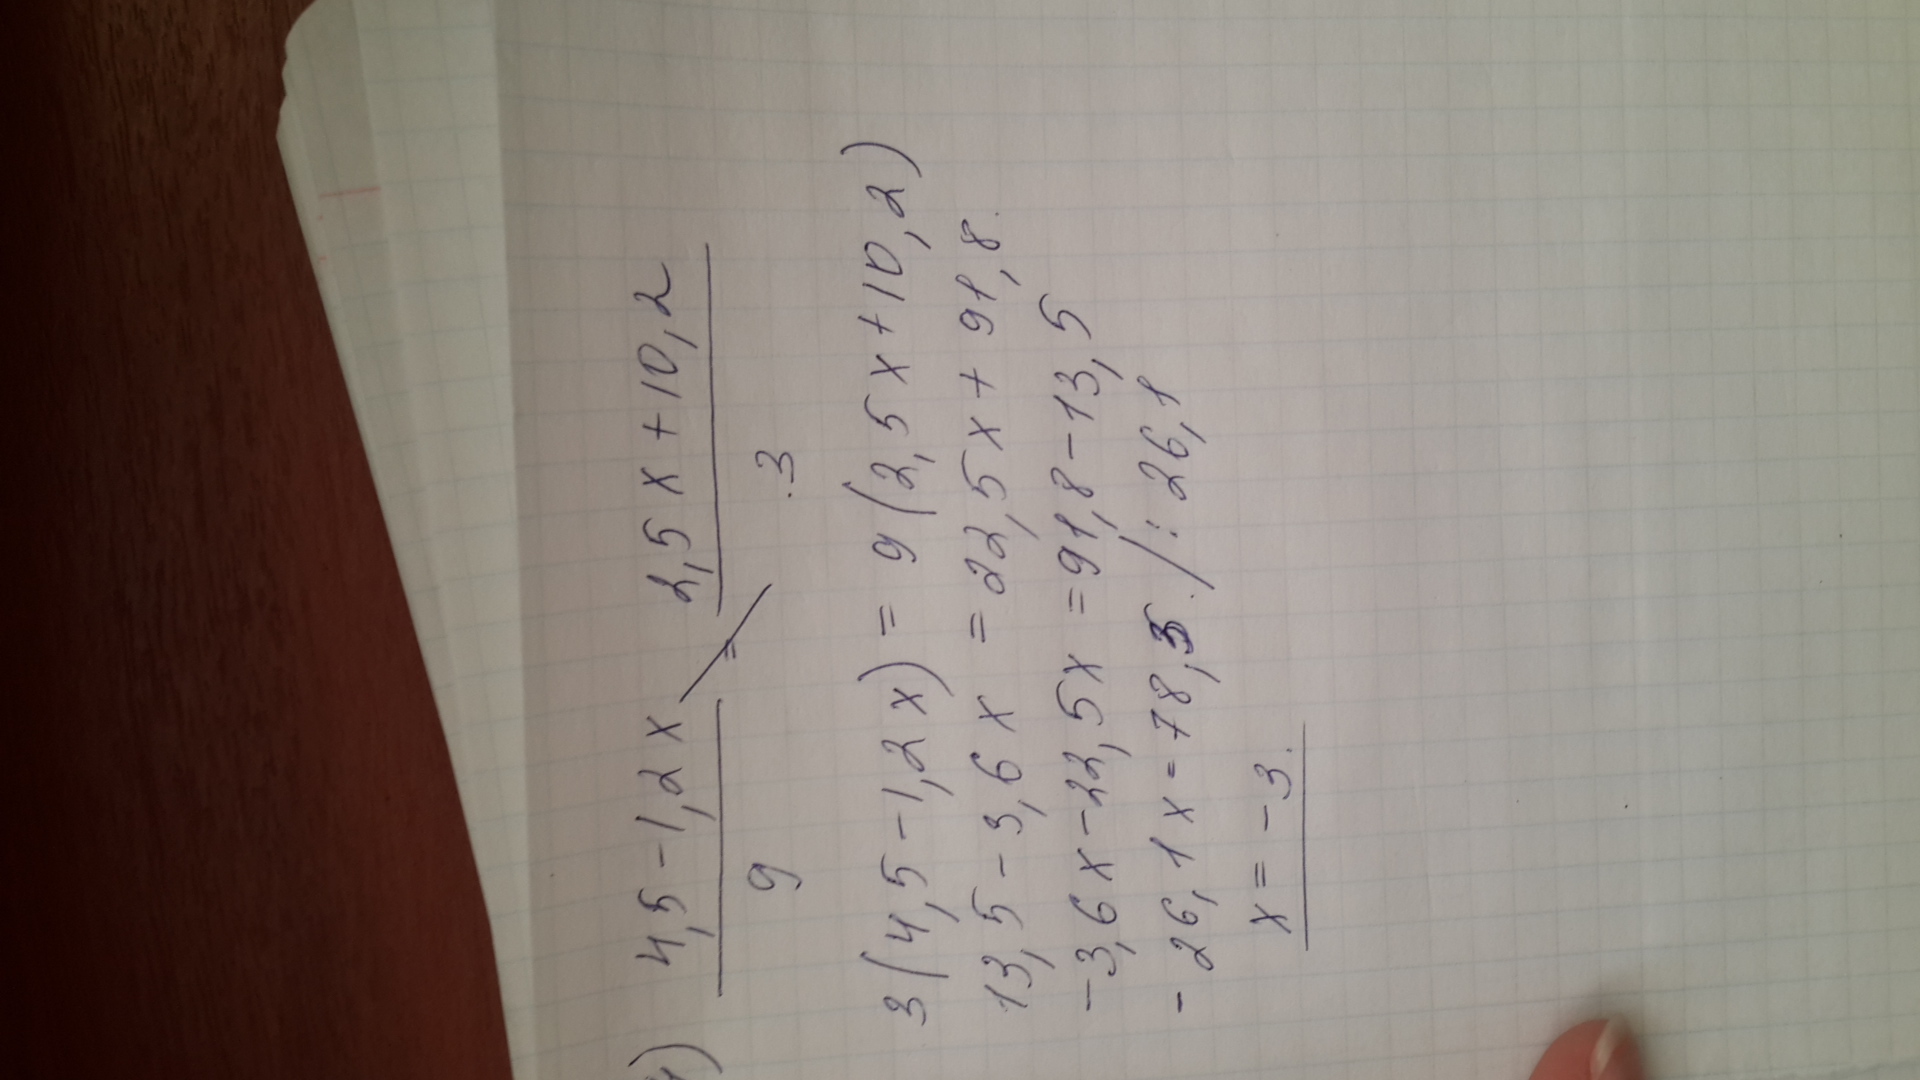 4,5-1,2x = 2,5x+10,2
9 3
3(4,5-1,2x) = 9(2,5x+10,2)
13,5-3,6x = 22,5x+91,8.
-3,6x-22,5x = 91,8-13,5
-26,1x = 78,3 /: 26,1
x = -3.